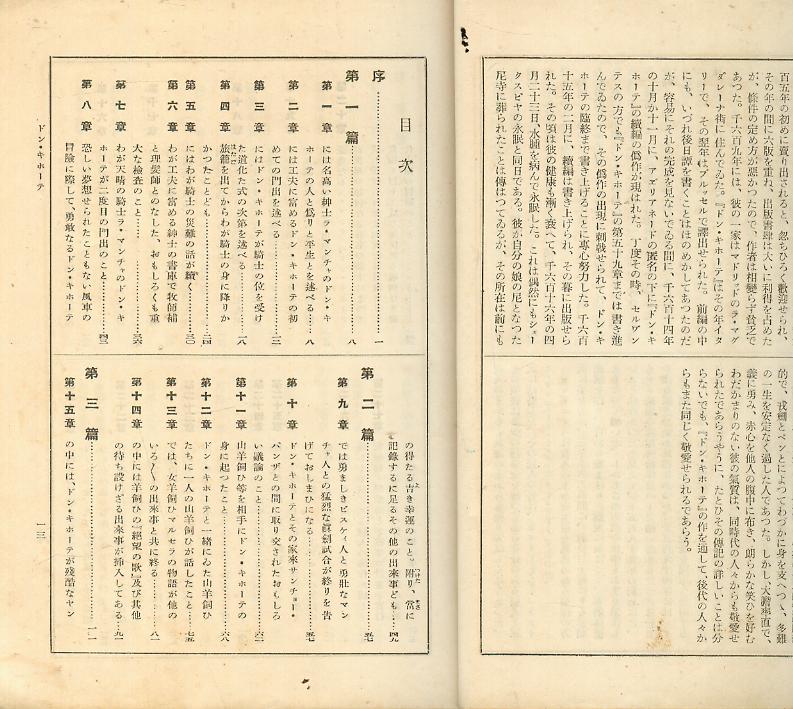 百五年の初めに賣り出されると、忽ちひろく歡迎せられ、
その年の間に六版を重ね、出版書肆は大いに利得を占めた
が、條件の定め方が惡かつたので、作者は相變らず貧乏で
あつた。千六百九年には、彼の一家はマドリッドのラ・マグ
ダレーナ街に住んでゐた。『ドン・キホーテ』はその年イタ
リーで、その翌年はブルッセルで譯出せられた。前編の中
にも、いづれ後日譚を書くことはほのめかしてあつたのだ
が、容易にそれの完成を見ないでゐる間に、千六百十四年
の十月か十一月に、アヹリアネードの匿名の下に『ドン・キ
ホーテ』の續編の僞作が現はれた。丁度その時、セルヷン
テスの方でも『ドン・キホーテ』の第五十九章までは書き進
んでゐたので、その僞作の出現に刺戟せられて、ドン・キ
ホーテの臨終まで書き上げることに專心努力した。千六百
十五年の二月に、續編は書き上げられ、その暮に出版せら
れた。その頃は彼の健康も漸く衰へて、千六百十六年の四
月二十三日、水腫を病んで永眠した。これは偶然にもシェー
クスピヤの永眠と同日である。彼が自分の娘の尼となつた
尼寺に葬られたことは傳はつてゐるが、その所在は前にも
的で、戎劍とペンとによつてわづかに身を支へつゝ、多難
の一生を安定なく過した人であつた。しかし、大膽率直で、
義に勇み、赤心を他人の腹中に布き、朗らかな笑ひを好む
わだかまりのない彼の氣質は、同時代の人々からも敬愛せ
られたであらうやうに、たとひその傳記の詳しいことは分
らないでも、『ドン・キホーテ』の作を通して、後代の人々か
らもまた同じく敬愛せられるであらう。
目次
序……一
第一篇……八
第一章 には名高い紳士ラ・マンチャのドン・キ
ホーテの人と爲りと平生とを述べる……八
第二章 には工夫に富めるドン・キホーテの初
めての門出を述べる……一三
第三章 にはドン・キホーテが騎士の位を受け
た道化た式の次第を述べる……一八
第四章 旅籠を出てからわが騎士の身に降りか
かつたことども……二四
第五章 にはわが騎士の災難の話が續く……三〇
第六章 わが工夫に富める紳士の書庫で牧師補
と理髮師とのなした、おもしろくも重
大な檢査のこと……三六
第七章 わが天晴の騎士ラ・マンチャのドン・キ
ホーテが二度目の門出のこと……四三
第八章 恐しい夢想せられたこともない風車の
冒險に際して、勇敢なるドン・キホーテ
の得たる吉き幸運のこと。附り、當に
記錄するに足るその他の出來事ども……四九
第二篇……五七
第九章 では勇ましきビスケィ人と勇壯なマン
チャ人との猛烈な眞劍試合が終りを告
げておしまひになる……五七
第十章 ドン・キホーテとその家來サンチョー・
パンザとの間に取り交されたおもしろ
い議論のこと……六二
第十一章 山羊飼ひ等を相手にドン・キホーテの
身に起つたこと……六八
第十二章 ドン・キホーテと一緒にゐた山羊飼ひ
たちに一人の山羊飼ひが話したこと……七五
第十三章 では、女羊飼ひマルセラの物語が他の
いろ〳〵の出來事と共に終る……八一
第十四章 の中には羊飼ひの『絕望の歌』及び其他
の待ち設けざる出來事が揷入してある…九一
第三篇……一〇一
第十五章 の中には、ドン・キホーテが殘酷なヤン
ドン・キホーテ
一三